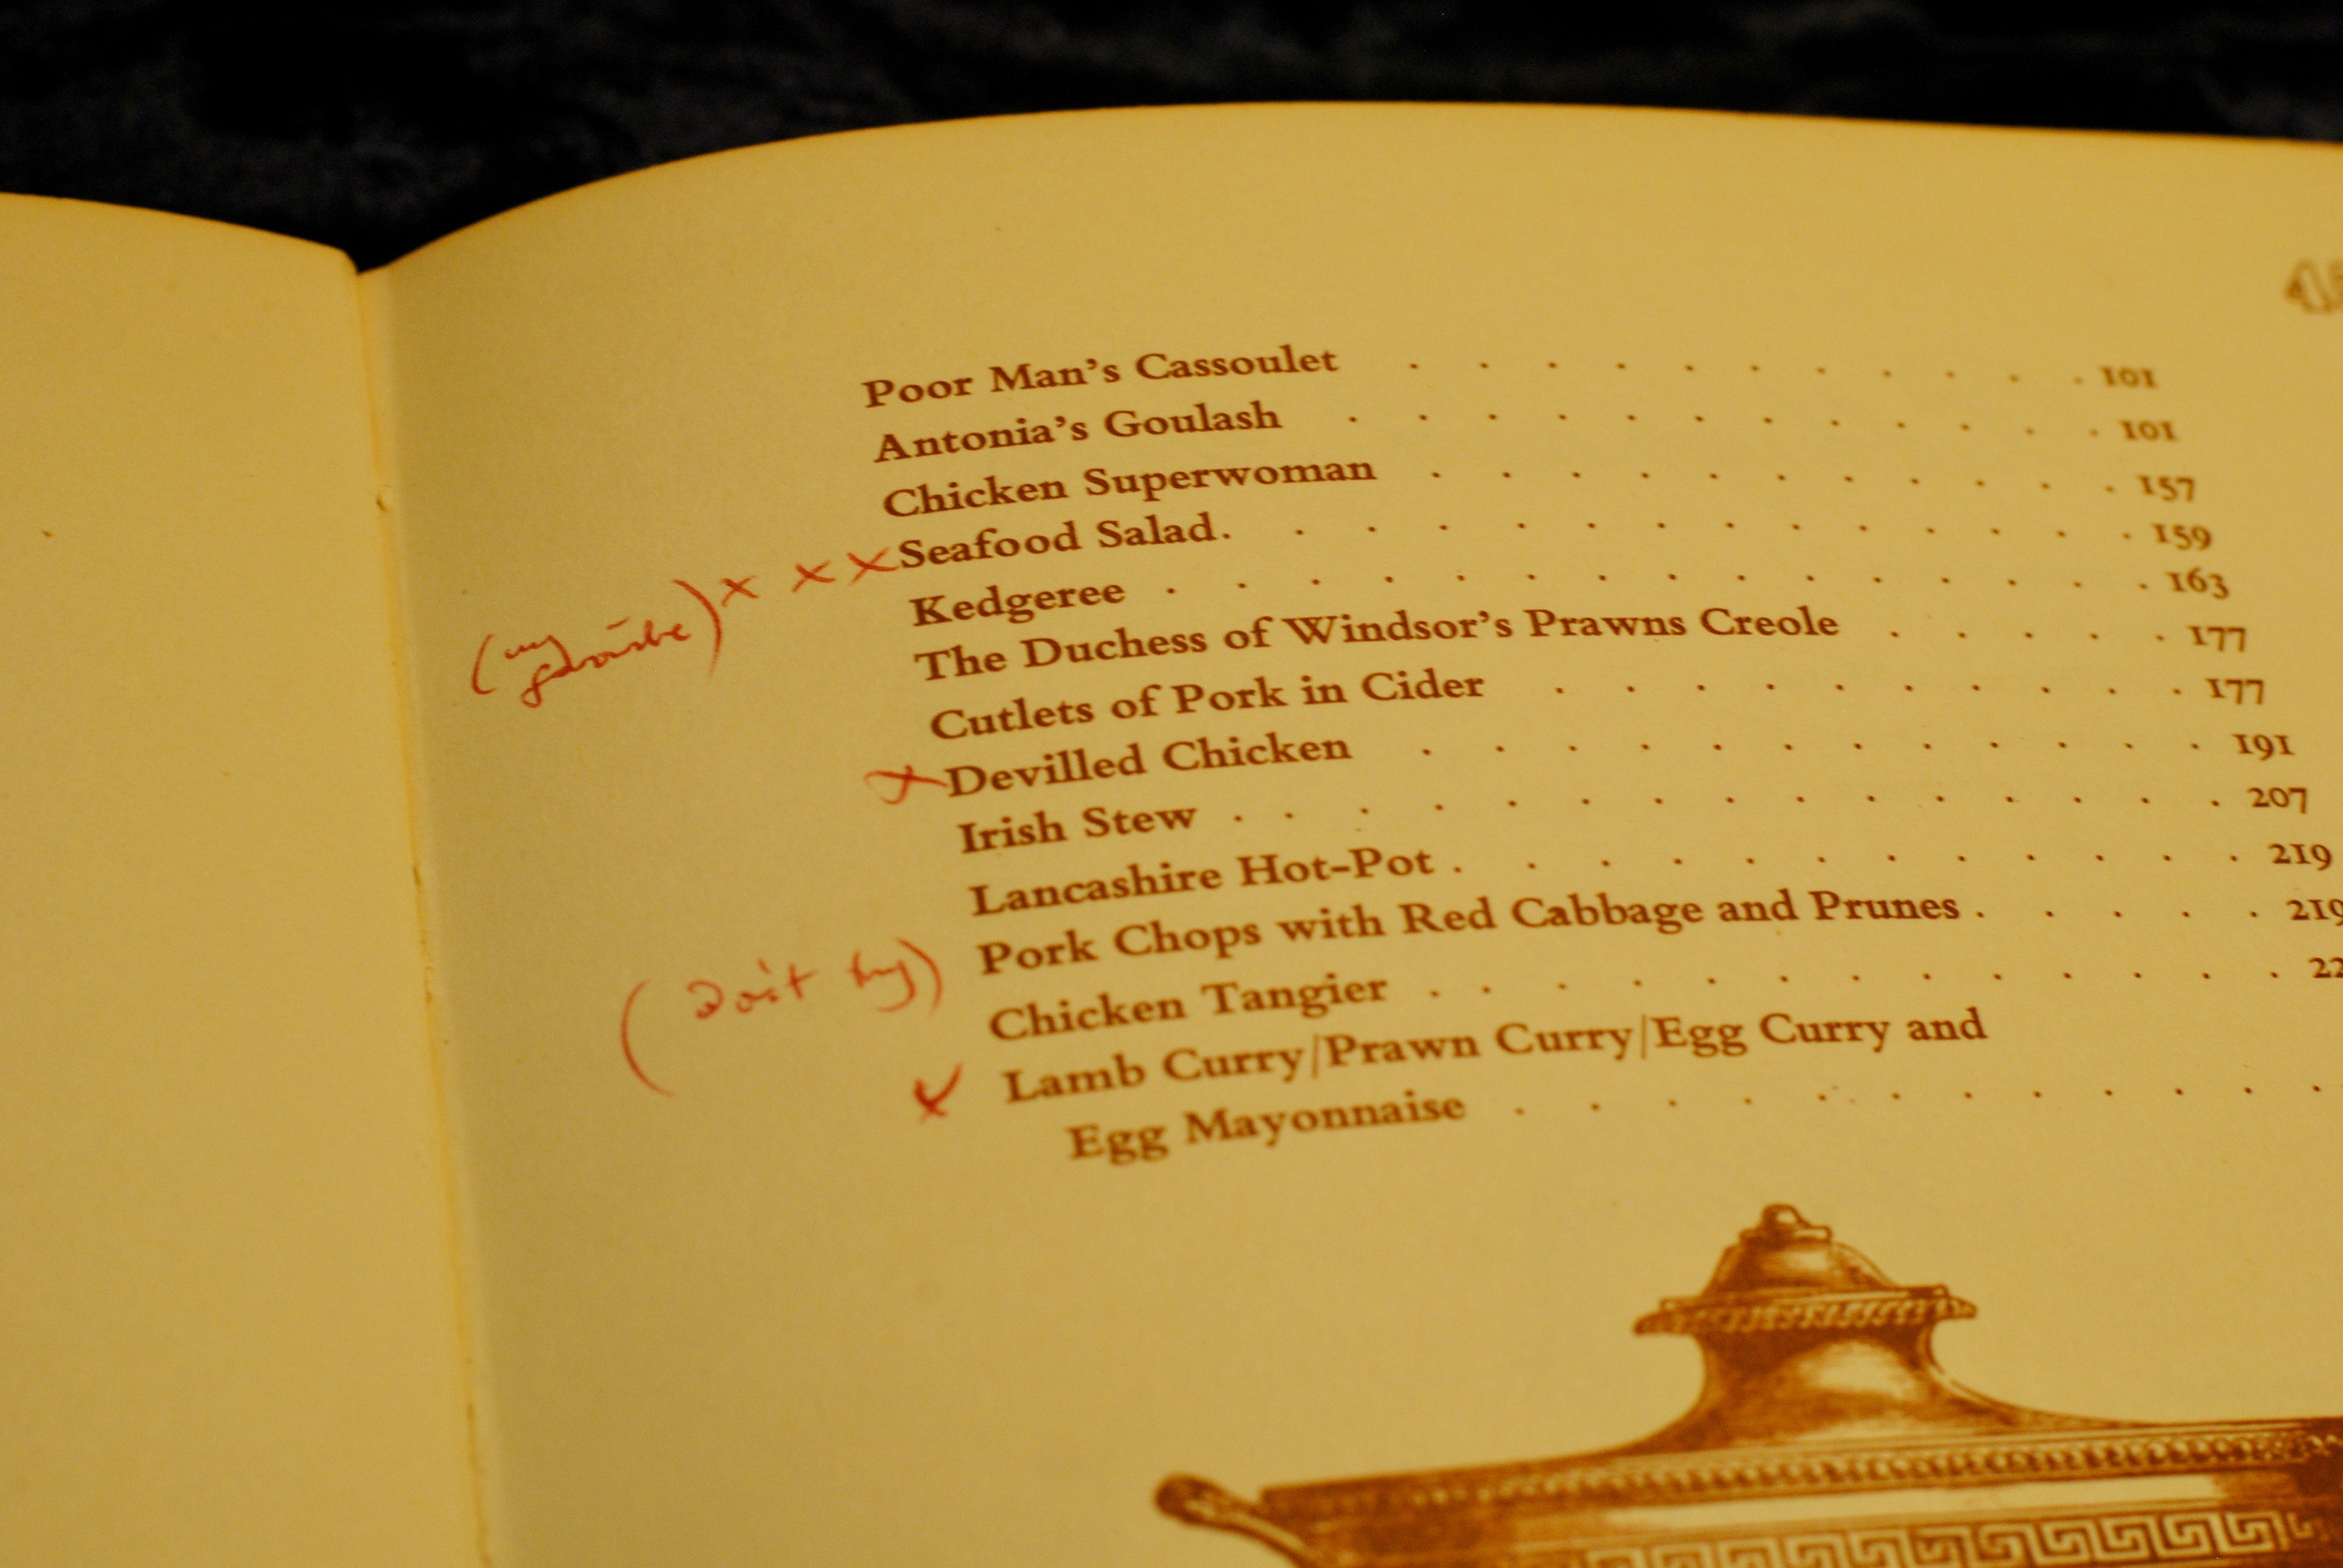 Poor Man's Cassoulet . . . . . . . . . . . 101
Antonia's Goulash . . . . . . . . . . . . 101
Chicken Superwoman . . . . . . . . . . . 157
(my favourite) x x x Seafood Salad. . . . . . . . . . . . . . 159
Kedgeree . . . . . . . . . . . . . . . 163
The Duchess of Windsor's Prawns Creole . . . . . 177
Cutlets of Pork in Cider . . . . . . . . . . 177
x Devilled Chicken . . . . . . . . . . . . 191
Irish Stew . . . . . . . . . . . . . . . 207
Lancashire Hot-Pot . . . . . . . . . . . . 219
Pork Chops with Red Cabbage and Prunes . . . . . 219
(Don't try) Chicken Tangier . . . . . . . . . . . . . 22
x Lamb Curry/Prawn Curry/Egg Curry and
Egg Mayonnaise . . . . . . . . . . . .